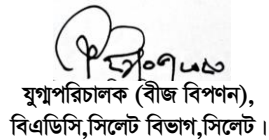 যুগ্মপরিচালক (বীজ বিপণন),
বিএডিসি,সিলেট বিভাগ,সিলেট।